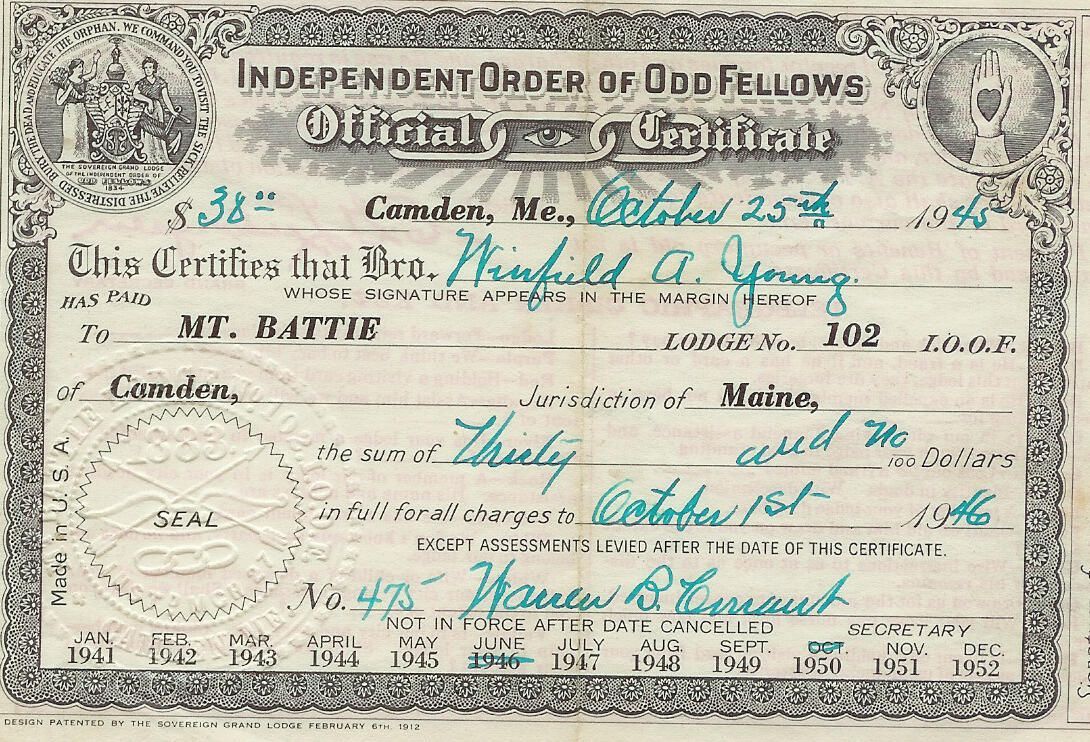 WE COMMAND YOU TO VISIT THE SICK, RELIEVE THE DISTRESSED, BURY THE DEAD AND EDUCATE THE ORPHAN.
THE SOVEREIGN GRAND LODGE
OF THE INDEPENDENT ORDER OF
ODD FELLOWS
1834
INDEPENDENT ORDER OF ODD FELLOWS
Official Certificate
$ 38 00 Camden, Me., October 25th 1945
This Certifies that Bro. Winfield A. Young.
HAS PAID WHOSE SIGNATURE APPEARS IN THE MARGIN HEREOF
To MT. BATTIE LODGE No. 102 I.O.O.F.
of Camden, Jurisdiction of Maine,
the sum of Thirty and no/100 Dollars
in full for all charges to October 1st 1946
EXCEPT ASSESSMENTS LEVIED AFTER THE DATE OF THIS CERTIFICATE.
No. 475 Warren B. Conant
NOT IN FORCE AFTER DATE CANCELLED SECRETARY
JAN. FEB. MAR. APRIL MAY JUNE JULY AUG. SEPT. OCT. NOV. DEC.
1941 1942 1943 1944 1945 1946 1947 1948 1949 1950 1951 1952
Made in U.S.A.
SEAL
DESIGN PATENTED BY THE SOVEREIGN GRAND LODGE FEBRUARY 6TH, 1912